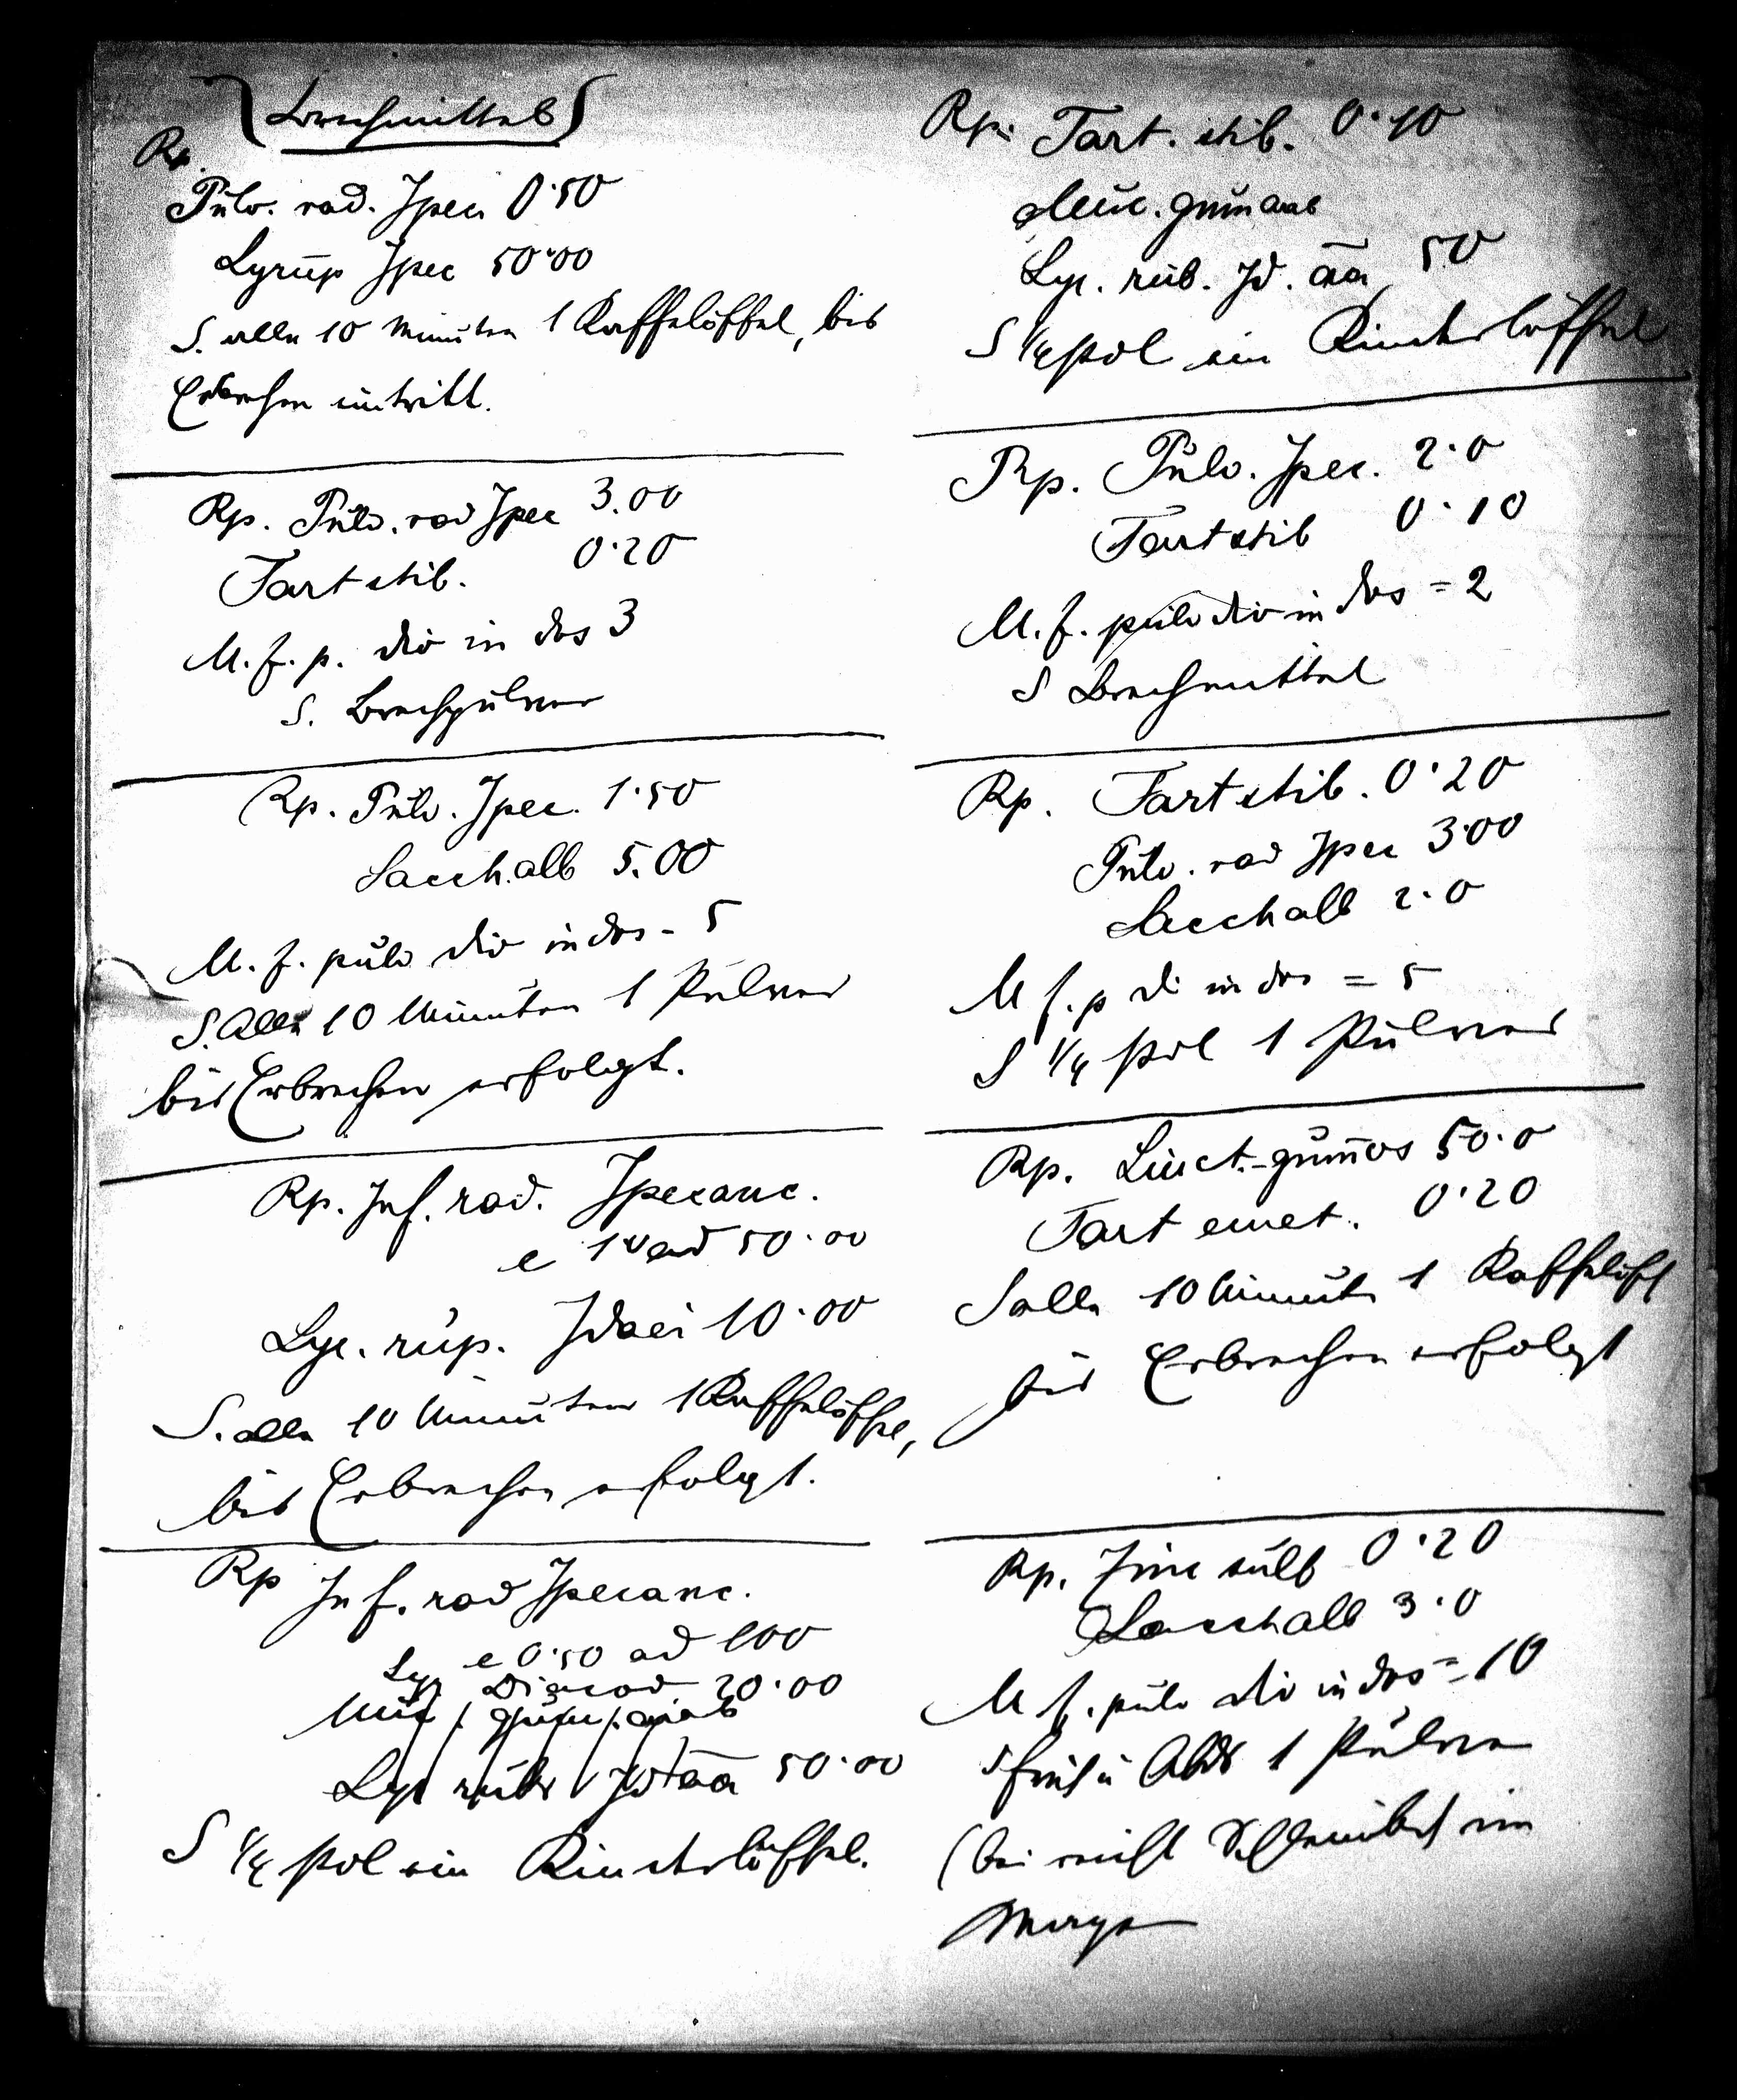 Brechmittel
Rp.
Pulv. rad. Ipec 0·50
Syrup Ipec 50·00
S. alle 10 Minuten 1 Kaffelöffel, bis
Erbrechen eintritt.
Rp. Pulv. rad Ipec 3.00
Tart stib. 0·20
M. f. p. div in dos 3
S. Brechpulver
Rp. Pulv. Ipec. 1·50
Sacch. alb 5.00
M. f. pulv div in dos = 5
S. Alle 10 Minuten 1 Pulver
bis Erbrechen erfolgt.
Rp. Inf. rad. Ipecauc.
e 1 ad 50·00
Syr. rup. Idaei 10·00
S. alle 10 Minuten 1 Kaffelöffel,
bis Erbrechen erfolgt.
Rp Inf. rad Ipecauc.
e 0·50 ad 100
Syr Diacod 20·00
Muc. gumm. arab
Syr rub Id aa 50·00
S ¼ stdl ein Kinderlöffel.
Rp: Tart. stib. 0·10
Muc. gum arab
Syr. rub. Id. aa 50
S ¼ stdl ein Kinderlöffel
Rp. Pulv. Ipec. 2·0
Tart stib 0·10
M. f. pulv div in dos = 2
S Brechmittel
Rp. Tart stib. 0·20
Pulv. rad Ipec 3·00
Sacch alb 2·0
M f. p di in dos = 5
S ¼ stdl 1 Pulver
Rp. Linct. gumos 50·0
Tart emet. 0·20
S alle 10 Minuten 1 Kaffelöffel
bis Erbrechen erfolgt
Rp. Zinc sulf 0·20
Sacch alb 3·0
M f. pulv div in dos = 10
S früh u Abds 1 Pulver
(bei
Magen